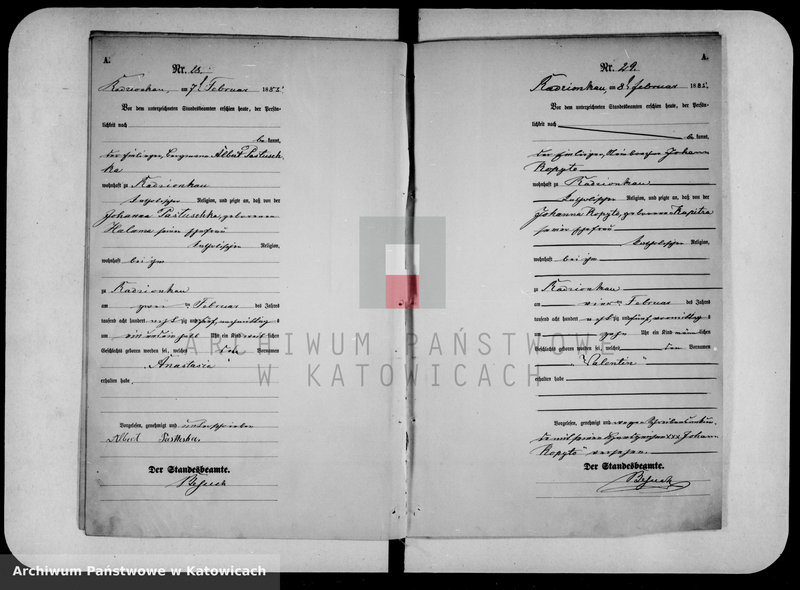 A.
Nr. 28.
Radzionkau, am 7. Februar 1885.
Vor dem unterzeichneten Standesbeamten erschien heute, der Persön-
lichkeit nach
be kannt,
der Einlieger, Bergmann Albert Pastusch-
ka
wohnhaft zu Radzionkau
katholischer Religion, und zeigte an, daß von der
Johanna Pastuschka, geborenen
Halama seiner Ehefrau
katholischer Religion,
wohnhaft bei ihm
zu Radzionkau
am zwei ten Februar des Jahres
tausend acht hundert acht zig und fünf, nachmittags
um Uhr ein Kind weib lichen
Geschlechts geboren worden sei, welches den Vornamen
Anastasia
erhalten habe.
Vorgelesen, genehmigt und unterschrieben
Albert
Der Standesbeamte.
A.
Nr. 29.
Radzionkau, am 8. Februar 1885.
Vor dem unterzeichneten Standesbeamten erschien heute, der Persön-
lichkeit nach
be kannt,
der Einlieger, Johann
Kopyto
wohnhaft zu Radzionkau
katholischer Religion, und zeigte an, daß von der
Johanna Kopyto, geborenen Kapitza
seiner Ehefrau
katholischer Religion,
wohnhaft bei ihm
zu Radzionkau
am vier ten Februar des Jahres
tausend acht hundert acht zig und fünf, vormittags
um zehn Uhr ein Kind männ lichen
Geschlechts geboren worden sei, welches den Vornamen
"Valentin"
erhalten habe.
Vorgelesen, genehmigt und wegen Schreibensunkun-
de mit seinem Handzeichen xxx Johann
Kopyto versehen.
Der Standesbeamte.
ARCHIWUM PAŃSTWOWE
W KATOWICACH
Archiwum Państwowe w Katowicach